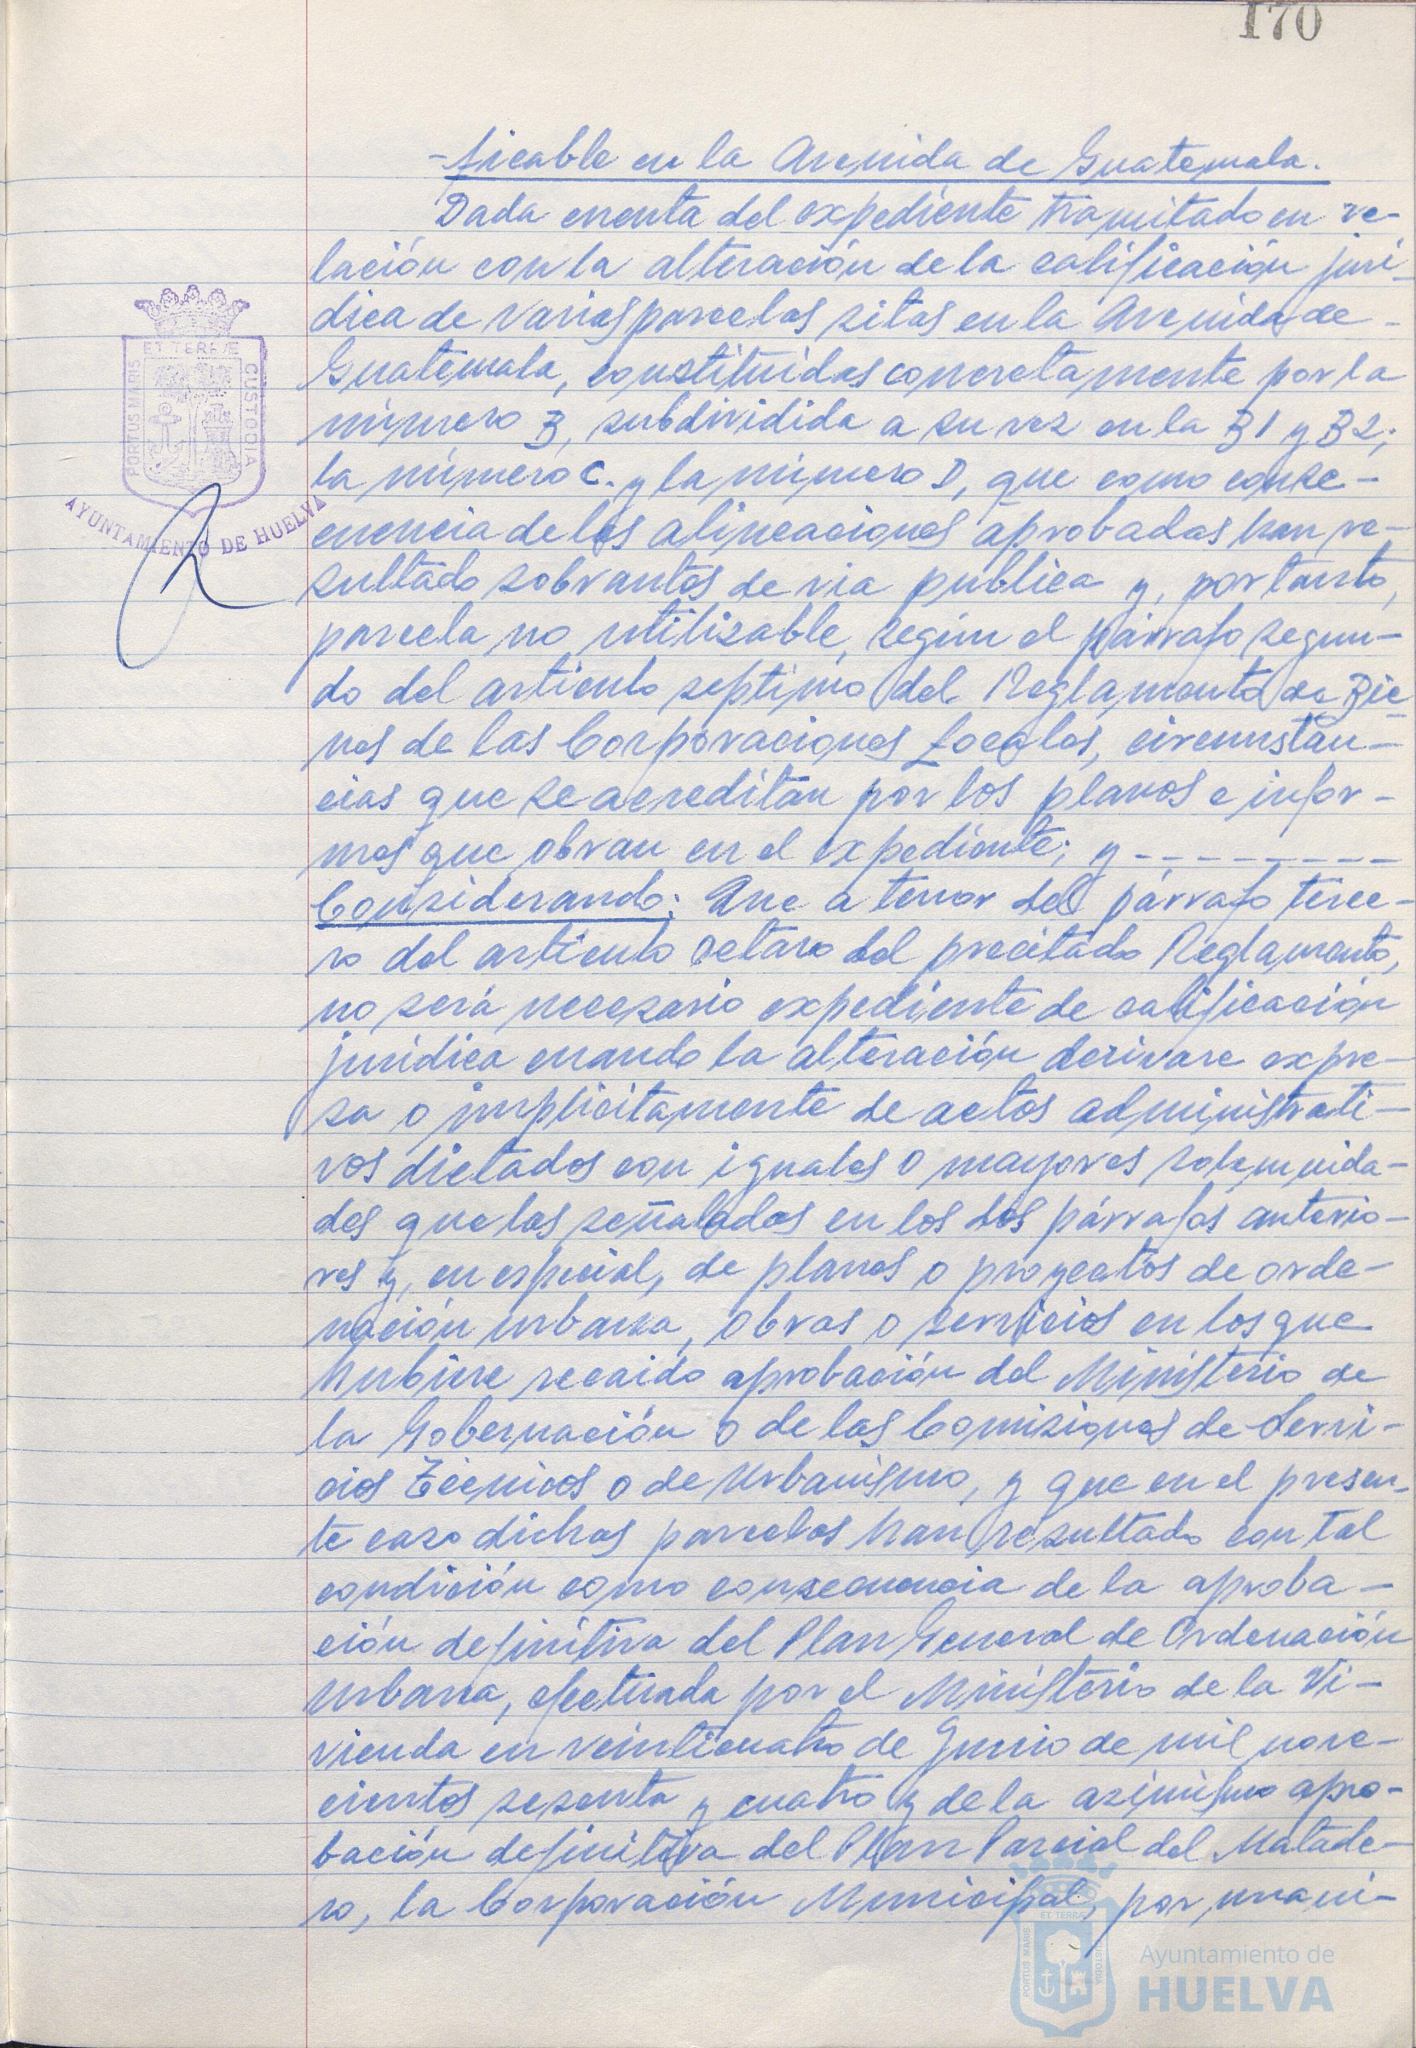 170
-ficable en la Avenida de Guatemala.
Dada cuenta del expediente tramitado en re-
lación con la alteración de la calificación jurí-
dica de varias parcelas sitas en la Avenida de
Guatemala, constituidas concretamente por la
número B, subdividida a su vez en la B1 y B2;
la número C. y la número D, que como conse-
cuencia de las alineaciones aprobadas han re-
sultado sobrantes de via publica y, por tanto,
parcela no utilizable, según el párrafo segun-
do del articulo septimo del Reglamento de Bie
nes de las Corporaciones Locales, circunstan-
cias que se acreditan por los planos e infor-
mes que obran en el expediente; y - - - - - - - -
Considerando: Que a tenor del párrafo terce-
ro del articulo octavo del precitado Reglamento,
no será necesario expediente de calificación
jurídica cuando la alteración derivare expre-
sa o implicitamente de actos administrati-
vos dictados con iguales o mayores solemnida-
des que las señaladas en los dos párrafos anterio-
res y, en especial, de planes o proyectos de orde-
nación urbana, obras o servicios en los que
hubiere recaido aprobación del Ministerio de
la Gobernación o de las Comisiones de Servi-
cios Técnicos o de Urbanismo, y que en el presen-
te caso dichas parcelas han resultado con tal
condición como consecuencia de la aproba-
ción definitiva del Plan General de Ordenación
Urbana, efectuada por el Ministerio de la Vi-
vienda en veinticuatro de Junio de mil nove-
cientos sesenta y cuatro y de la asimismo apro-
bación definitiva del Plan Parcial del Matade-
ro, la Corporación Municipal, por unani-
ET TERRÆ
PORTUS MARIS
CUSTODIA
AYUNTAMIENTO DE HUELVA
ET TERRÆ
PORTUS MARIS
CUSTODIA
Ayuntamiento de
HUELVA